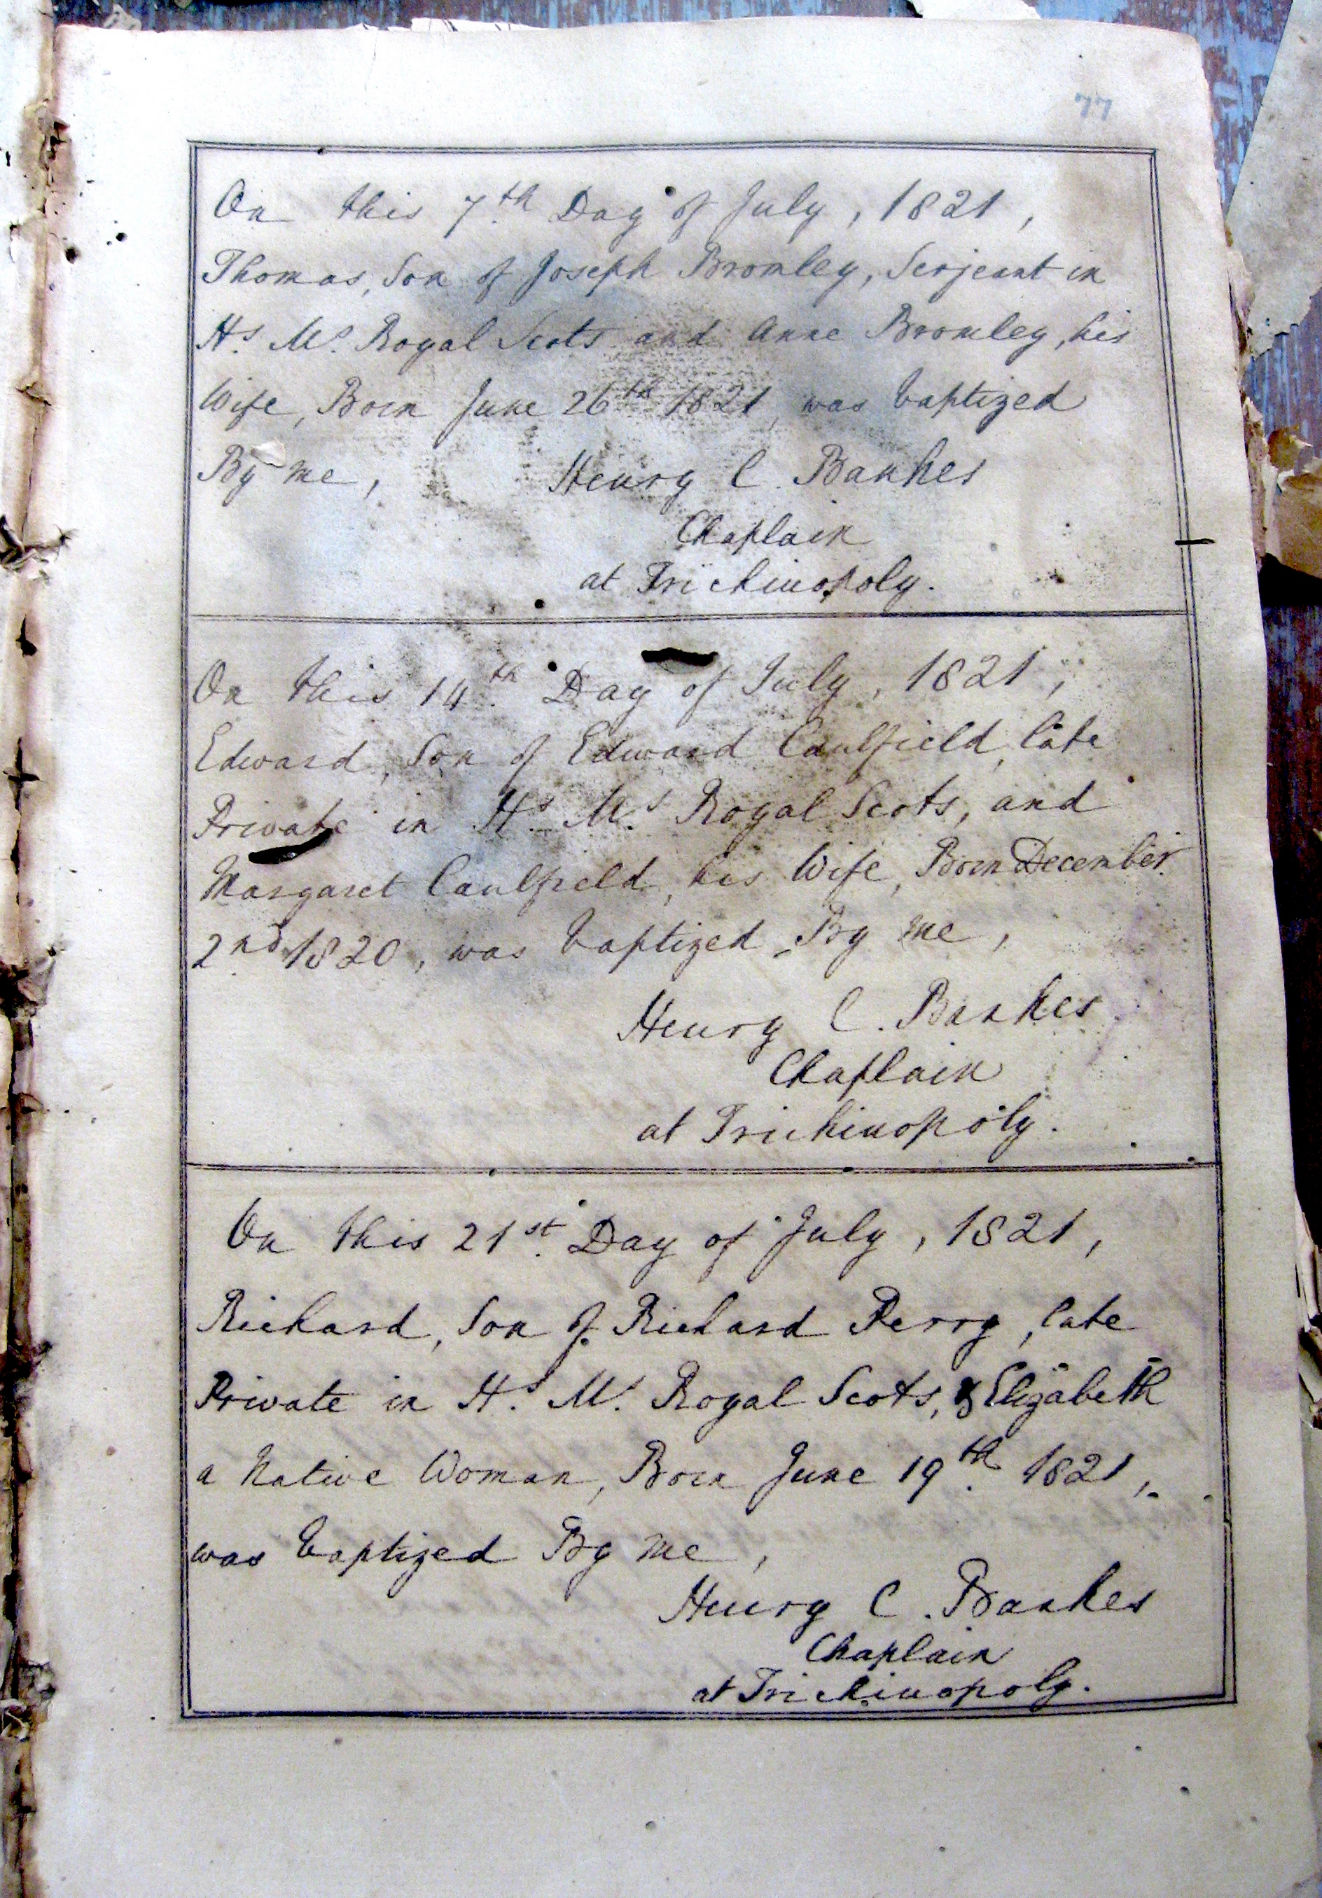 77
On this 7th Day of July, 1821,
Thomas, Son of Joseph Bromley, Serjeant in
Hs. Ms. Royal Scots and Anne Bromley, his
Wife, Born June 26th 1821, was baptized
By me, Henry C. Bankes
Chaplain
at Trichinopoly.
On this 14th Day of July, 1821,
Edward, Son of Edward Caulfield, late
Private in Hs. Ms. Royal Scots, and
Margaret Caulfield, his Wife, Born December
2nd 1820, was baptized By me,
Henry C. Bankes
Chaplain
at Trichinopoly.
On this 21st Day of July, 1821,
Richard, Son of Richard Perry, late
Private in Hs. Ms. Royal Scots, & Elizabeth
a Native Woman, Born June 19th 1821,
was baptized By me,
Henry C. Bankes
Chaplain
at Trichinopoly.